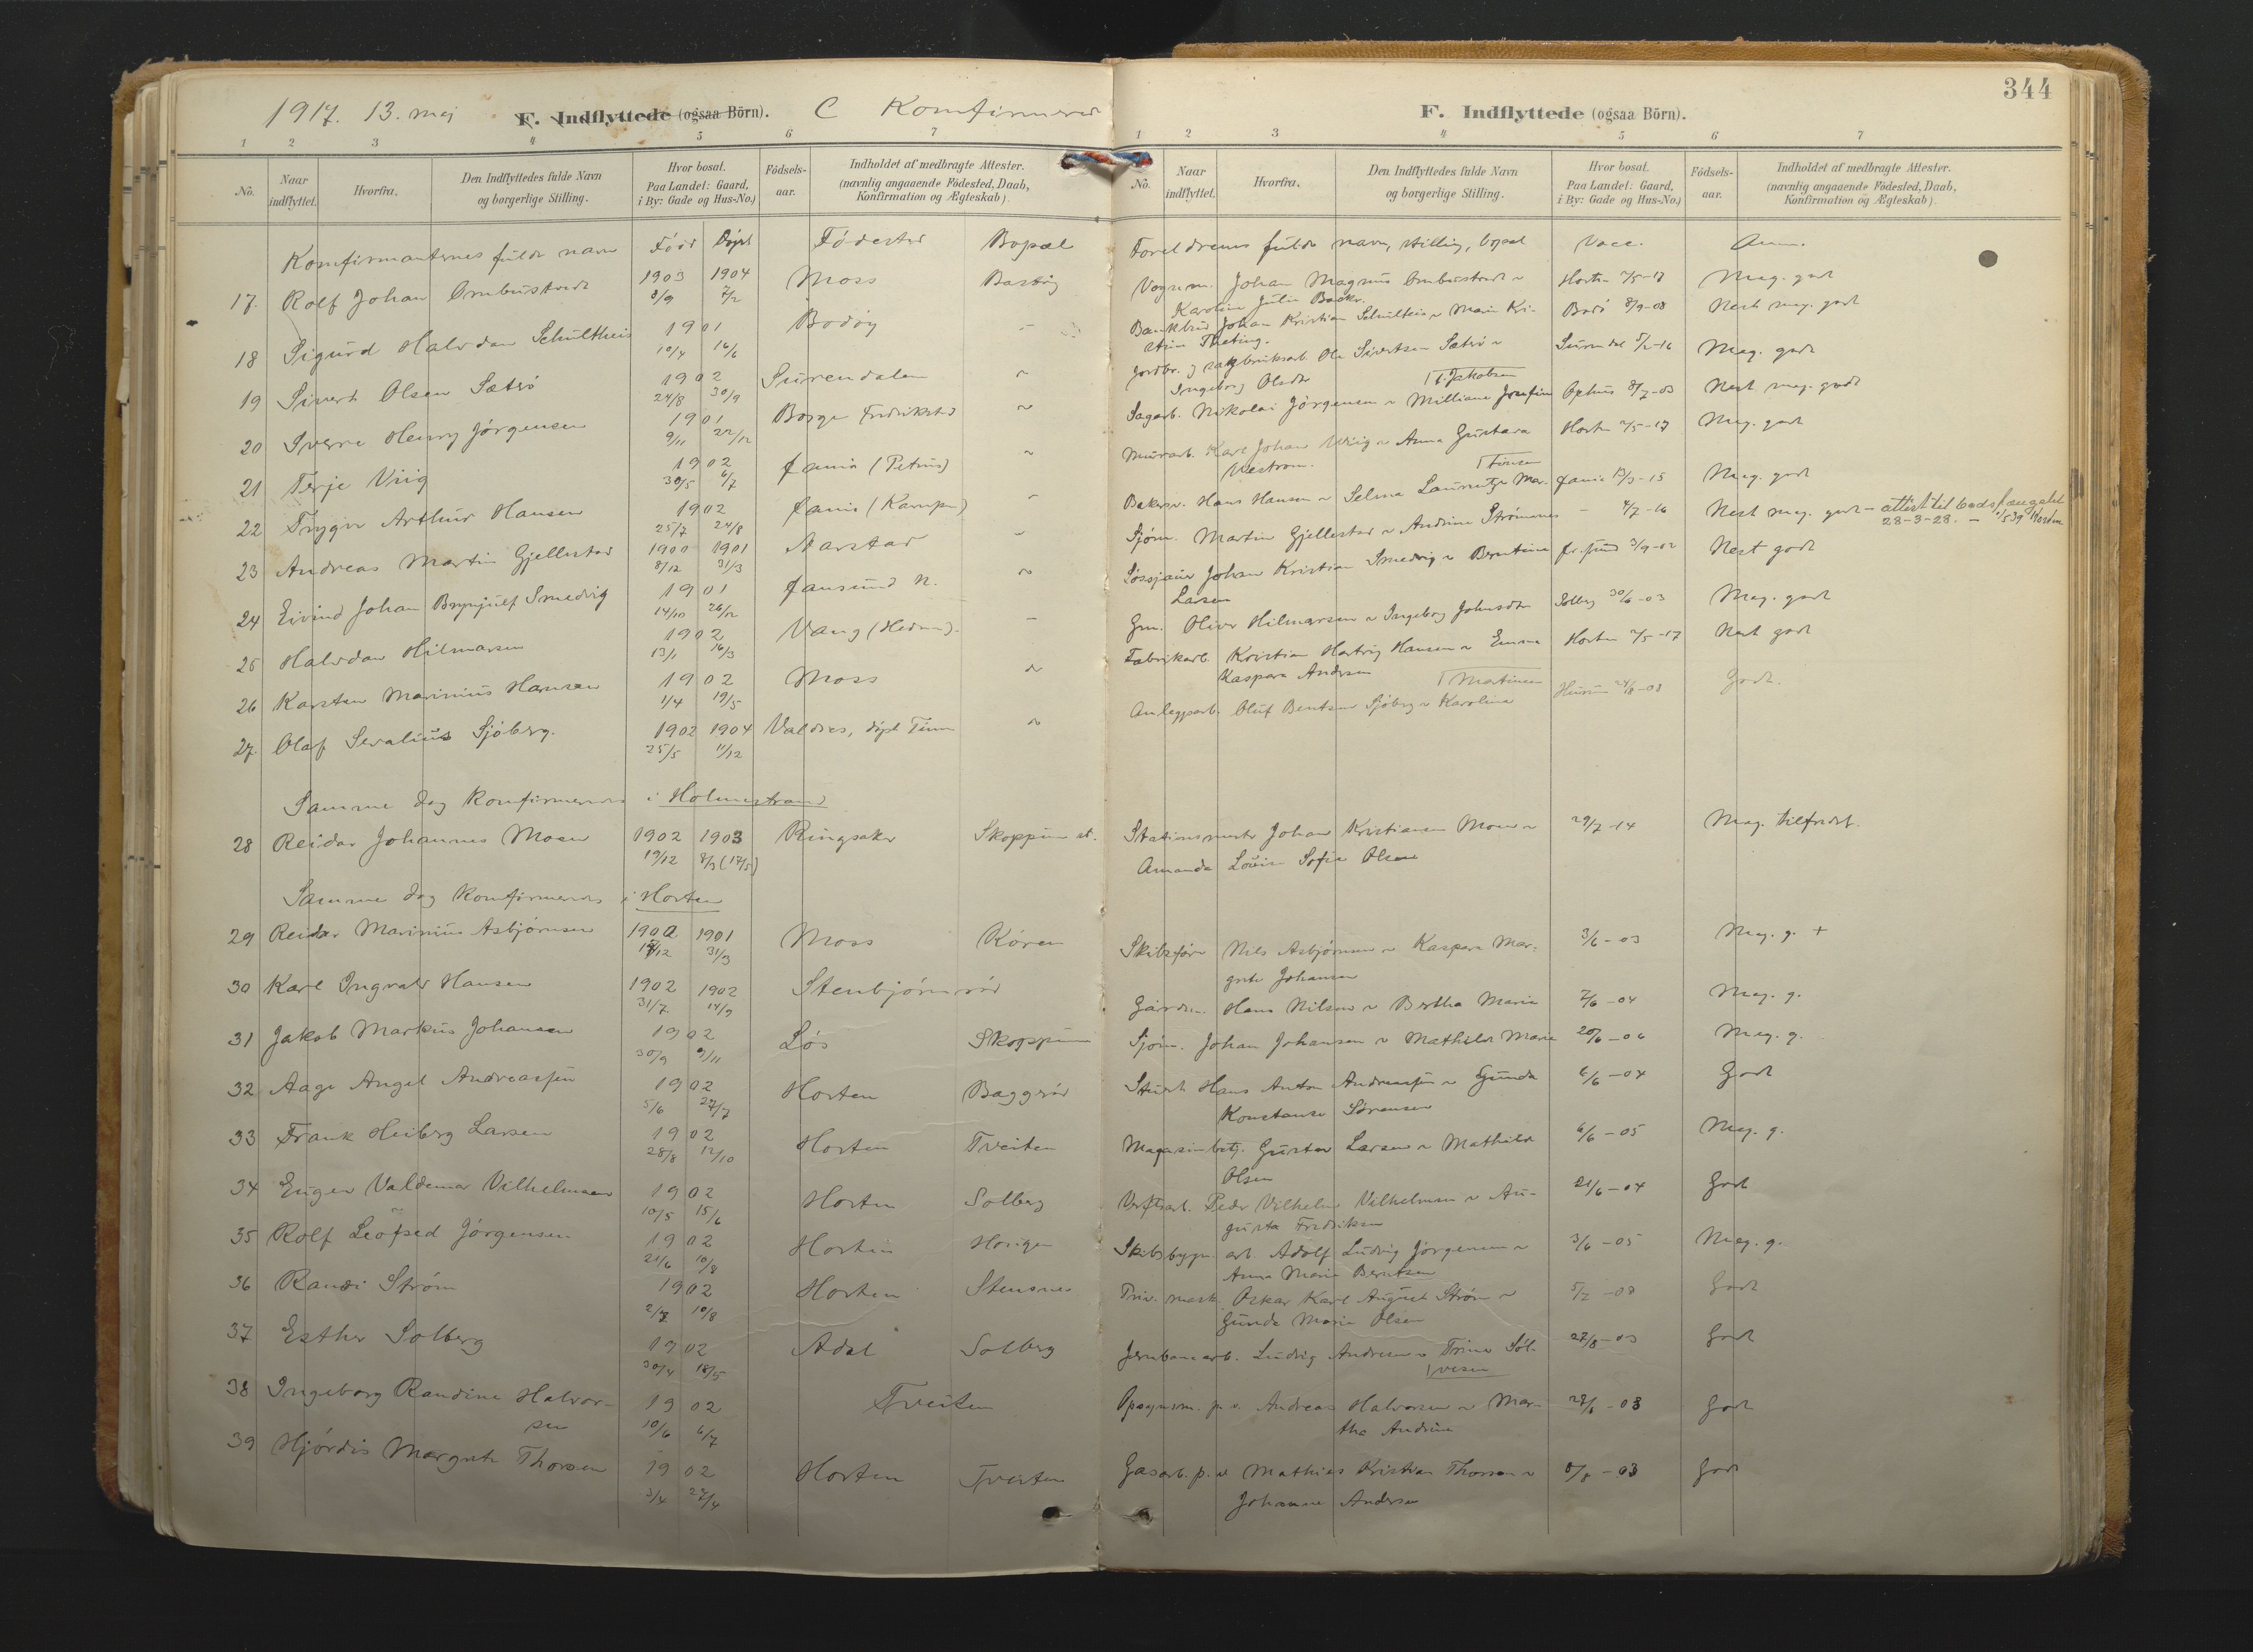 344
1917. 13. mai F. Indflyttede (ogsaa Börn). C Konfirmerede
1 2 3 4 5 6 7
No. Naar indflyttet. Hvorfra. Den Indflyttedes fulde Navn og borgerlige Stilling. Hvor bosat. Paa Landet: Gaard, i By: Gade og Hus-No.) Födsels-aar. Indholdet af medbragte Attester. (navnlig angaaende Födested, Daab, Konfirmation og Ægteskab).
Konfirmanternes fulde navn Född Döpt Födested Bopæl
17. Rolf Johan 1903 1904 Moss Bastöy
8/9 7/2
18 Sigurd Halvdan Schultheis 1901 Bodöy -
10/4 16/6
19 Sivert Olsen Sæterö 1902 Surendalen ~
24/8 30/9
20 Sverre Henry Jörgensen 1901 Borge Fredrikstd ~
9/11 22/12
21 Terje Viig 1902 (Petrus) ~
30/5 6/7
22 Trygve Arthur Hansen 1902 (Kampn) ~
25/7 24/8
23 Andreas Martin Gjellestad 1900 1901 Narstad ~
8/12 31/3
24 Eivind Johan Brynjulf Smedvig 1901 N. ~
14/10 26/12
25 Halvdan Hilmarsen 1902 Vang (Hedm). -
13/1 16/3
26 Karsten Marinius Hansen 1902 Moss ~
1/4 19/5
27. Olaf Sevalius Sjöberg. 1902 1904 Valdres, döpt Tinn ~
25/5 11/12
Samme dag konfirmeredes i Holmestrand
28 Reidar Johannes Moen 1902 1903 Ringsaker Skoppum st.
19/12 8/3 (17/5)
Samme dag konfirmeredes i Horten
29 Reidar Marinius Asbjörnsen 1900 1901 Moss Kören
31/3
30 Karl Ingvald Hansen 1902 1902 Stenbjörnröd
31/7 14/9
31 Jakob Markus Johansen 1902 Lös Skoppum
30/9 9/11
32 Aage Angel Andreassen 1902 Horten Baggeröd
5/6 27/7
33 Frank Heiberg Larsen 1902 Horten Tveiten
28/8 12/10
34 Eugen Valdemar Vilhelmsen 1902 Horten Solberg
10/5 15/6
35 Rolf Leofred Jörgensen 1902 Horten
21/6 10/8
36 Randi Ström 1902 Horten Stensnes
2/7 10/8
37 Esther Solberg 1902 Adal Solberg
30/4 18/5
38 Ingeborg Randine Halvor- 1902 Tveiten
sen 10/6 6/7
39 Hjördis Margrete Thorsen 1902 Horten Tveiten
3/4 27/4
F. Indflyttede (ogsaa Börn).
1 2 3 4 5 6 7
No. Naar indflyttet. Hvorfra. Den Indflyttedes fulde Navn og borgerlige Stilling. Hvor bosat. Paa Landet: Gaard, i By: Gade og Hus-No.) Födsels-aar. Indholdet af medbragte Attester. (navnlig angaaende Födested, Daab, Konfirmation og Ægteskab).
Foreldrenes fulde navn, stilling, bopæl Vacc. Anm.
Vognm. Johan Magnus ~ Horten 2/5-17 Meg. godt
Karoline Julie
Johan Kristian Schulteis ~ Marie Kri- Bodö 8/9-08 Nest meg. godt
stine
Jordbr. og sagbruksarb. Ole Sivertsen Sæterö ~ Meg. godt
Ingeborg Olsdtr
Jakobsen
Sagarb. Nikolai Jörgensen ~ Milliane Josefine 8/7-03 Nest meg. godt
Murarb. Karl Johan Viig ~ Anna Gustava Horten 2/5-17 Meg. godt
Hans Hansen ~ Selma Laurentze Mar- 13/3-15 Meg. godt
tinsen
Sjöm. Martin Gjellestad ~ Andrine Strömsnes - 4/7-16 Nest meg. godt - attest til bodsfængslet
28-3-28. - 1/5 39 Horten
Johan Kristian Smedvig ~ Berntine 3/9-02 Nest godt
Larsen
Gm. Oliver Hilmarsen ~ Ingeborg Johnsdtr Solberg 30/6-03 Meg. godt
Fabrikarb. Kristian Hartvig Hansen ~ Emma Horten 2/5-17 Nest godt
Kaspara Andersen
Anlegsarb. Oluf Bentsen Sjöberg ~ Karoline 24/8-08 Godt.
Stationsmester Johan Kristiansen Moen ~ 29/7-14 Meg. tilfredst.
Amanda Lovise Sofie Olsen
Skibsförer Nils Asbjörnsen ~ Kaspara Mar- 3/6-03 Meg. g. +
grete Johansen
Gårdm. Hans Nilsen ~ Bertha Marie 7/6-04 Meg. g.
Sjöm. Johan Johansen ~ Mathilde Marie 20/6-06 Meg. g.
Hans Anton Andreassen ~ Gunda 6/6-04 Godt
Konstanse Sörensen
Magasinbetj. Gustav Larsen ~ Mathilde 6/6-05 Meg. g.
Olsen
Verftsarb. Peder Vilhelm Vilhelmsen ~ Au- 21/6-04 Godt
gusta Fredriksen
Skibsbygn. arb. Adolf Ludvig Jörgensen ~ 3/6-05 Meg. g.
Anna Marie Berntsen
Oskar Karl August Ström ~ 5/2-08 Godt
Gunda Marie Olsen
Jernbanearb. Ludvig Andresen ~ Trine Söl- 27/8-03 Godt
vesen
Opsynsm. p.v. Andreas Halvorsen ~ Mar- 03 Godt
tha Andrine
Gasarb. p.v. Mathias Kristian Thorsen ~ 03 Godt
Johanne Andersen